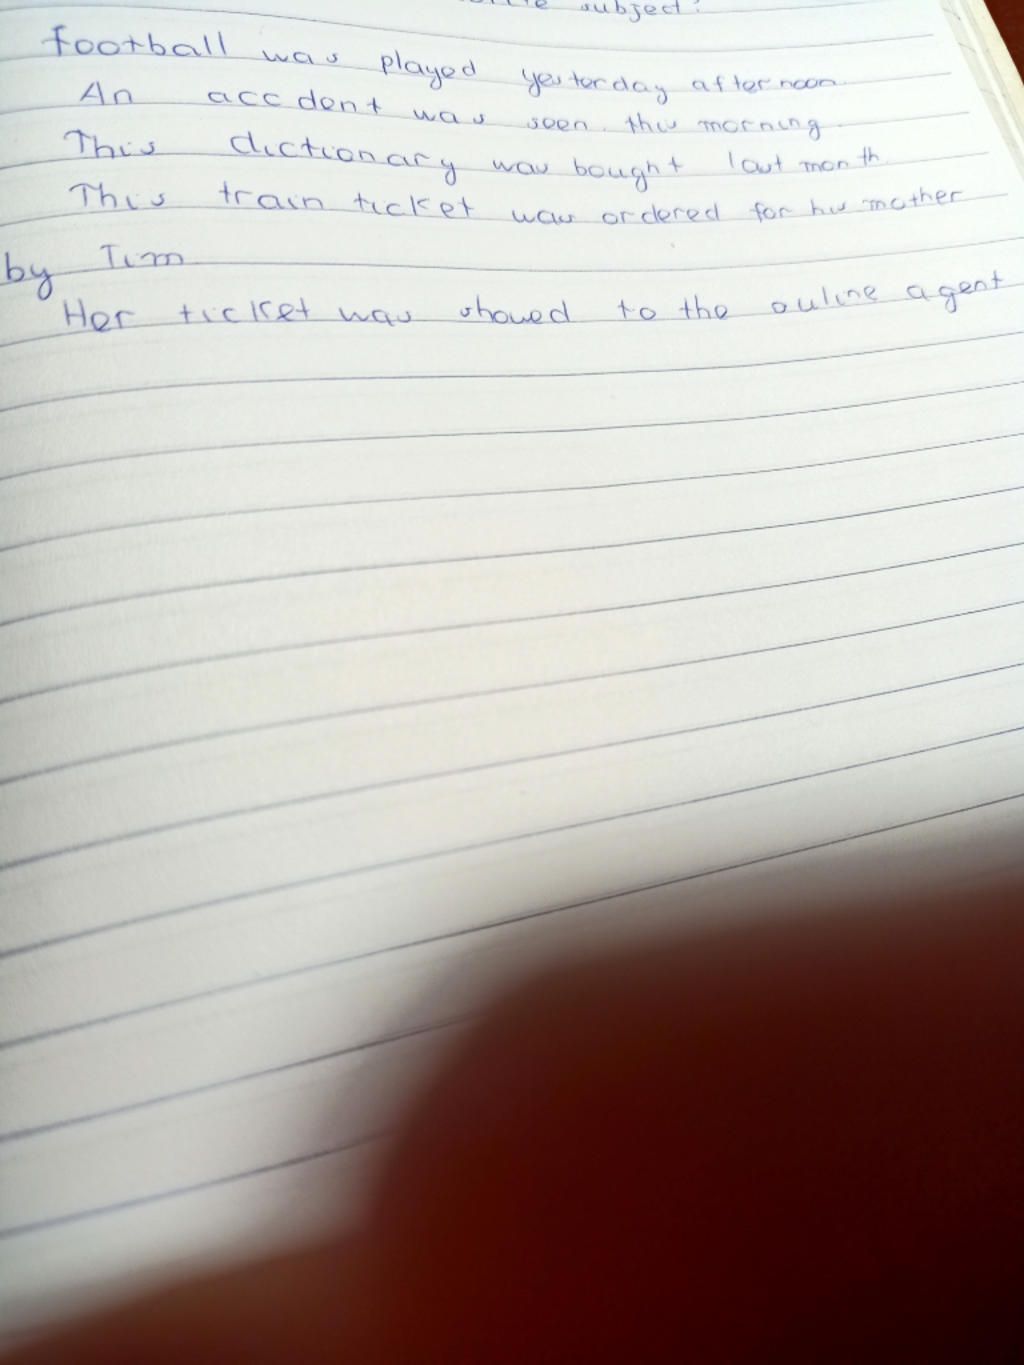 subject:
Football was played yesterday afternoon.
An accident was seen this morning.
This dictionary was bought last month.
This train ticket was ordered for his mother
by Tim
Her ticket was showed to the auline agent